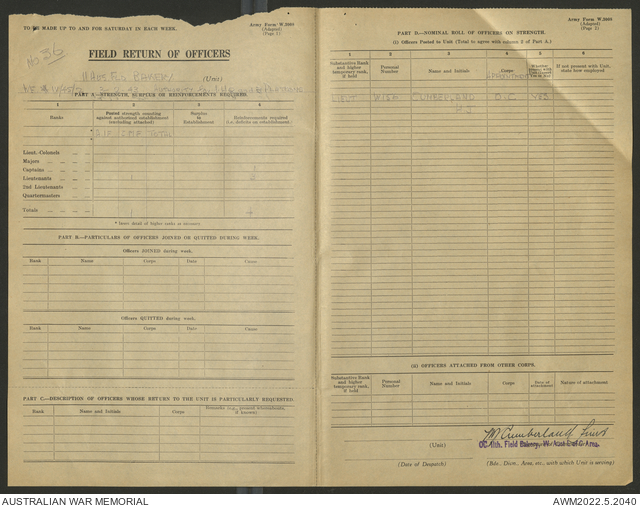 TO BE MADE UP TO AND FOR SATURDAY IN EACH WEEK.
Army Form W.3969
(Adapted)
(Page 1)
No 36
FIELD RETURN OF OFFICERS
Fld. BAKERY (Unit)
PART A—STRENGTH, SURPLUS OR REINFORCEMENTS REQUIRED.
1 2 3 4
Ranks
Posted strength counting against authorised establishment (excluding attached)
Surplus to Establishment
Reinforcements required (i.e. deficits on establishment)
AIF CMF TOTAL
Lieut.-Colonels
Majors
Captains
Lieutenants 1
2nd Lieutenants
Quartermasters
Totals
* Insert detail of higher ranks as necessary.
PART B—PARTICULARS OF OFFICERS JOINED OR QUITTED DURING WEEK.
Officers JOINED during week.
Rank Name Corps Date Cause
Officers QUITTED during week.
Rank Name Corps Date Cause
PART C—DESCRIPTION OF OFFICERS WHOSE RETURN TO THE UNIT IS PARTICULARLY REQUESTED.
Rank Name and Initials Corps Remarks (e.g., present whereabouts, if known)
Army Form W.3969
(Adapted)
(Page 2)
PART D—NOMINAL ROLL OF OFFICERS ON STRENGTH.
(i) Officers Posted to Unit (Total to agree with column 2 of Part A.)
1 2 3 4 5 6
Substantive Rank and higher temporary rank, if held
Personal Number
Name and Initials
Corps
APPOINTMENT
If not present with Unit, state how employed
LIEUT CUMBERLAND O.C YES
H J
(ii) OFFICERS ATTACHED FROM OTHER CORPS.
Substantive Rank and higher temporary rank, if held
Personal Number
Name and Initials
Corps
Date of attachment
Nature of attachment
Cumberland Lieut
(Unit) OC 11th. Field Bakery, W/Aust L of C Area.
(Date of Despatch) (Bde., Divn., Area, etc., with which Unit is serving)
AUSTRALIAN WAR MEMORIAL
AWM2022.5.2040